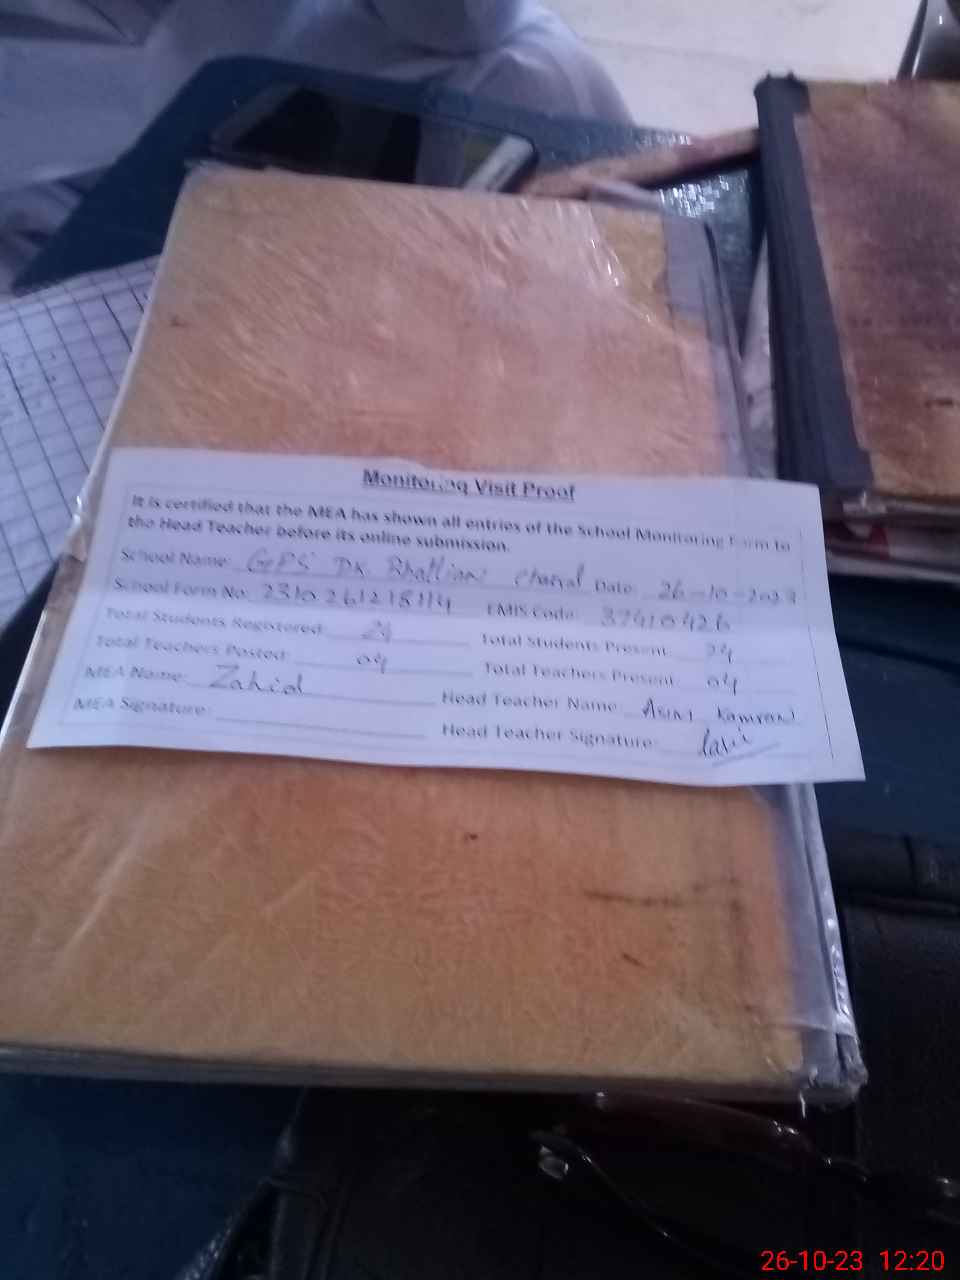 Monitoring Visit Proof
It is certified that the MEA has shown all entries of the School Monitoring Form to
the Head Teacher before its online submission.
School Name: GPS DK Bhattian Date: 26-10-2023
School Form No: 2310261218114 EMIS Code: 37410426
Total Students Registered: 24 Total Students Present 24
Total Teachers Posted: 04 Total Teachers Present 04
MEA Name: Zahid Head Teacher Name: Asim Kamran
MEA Signature: Head Teacher Signature:
26-10-23 12:20